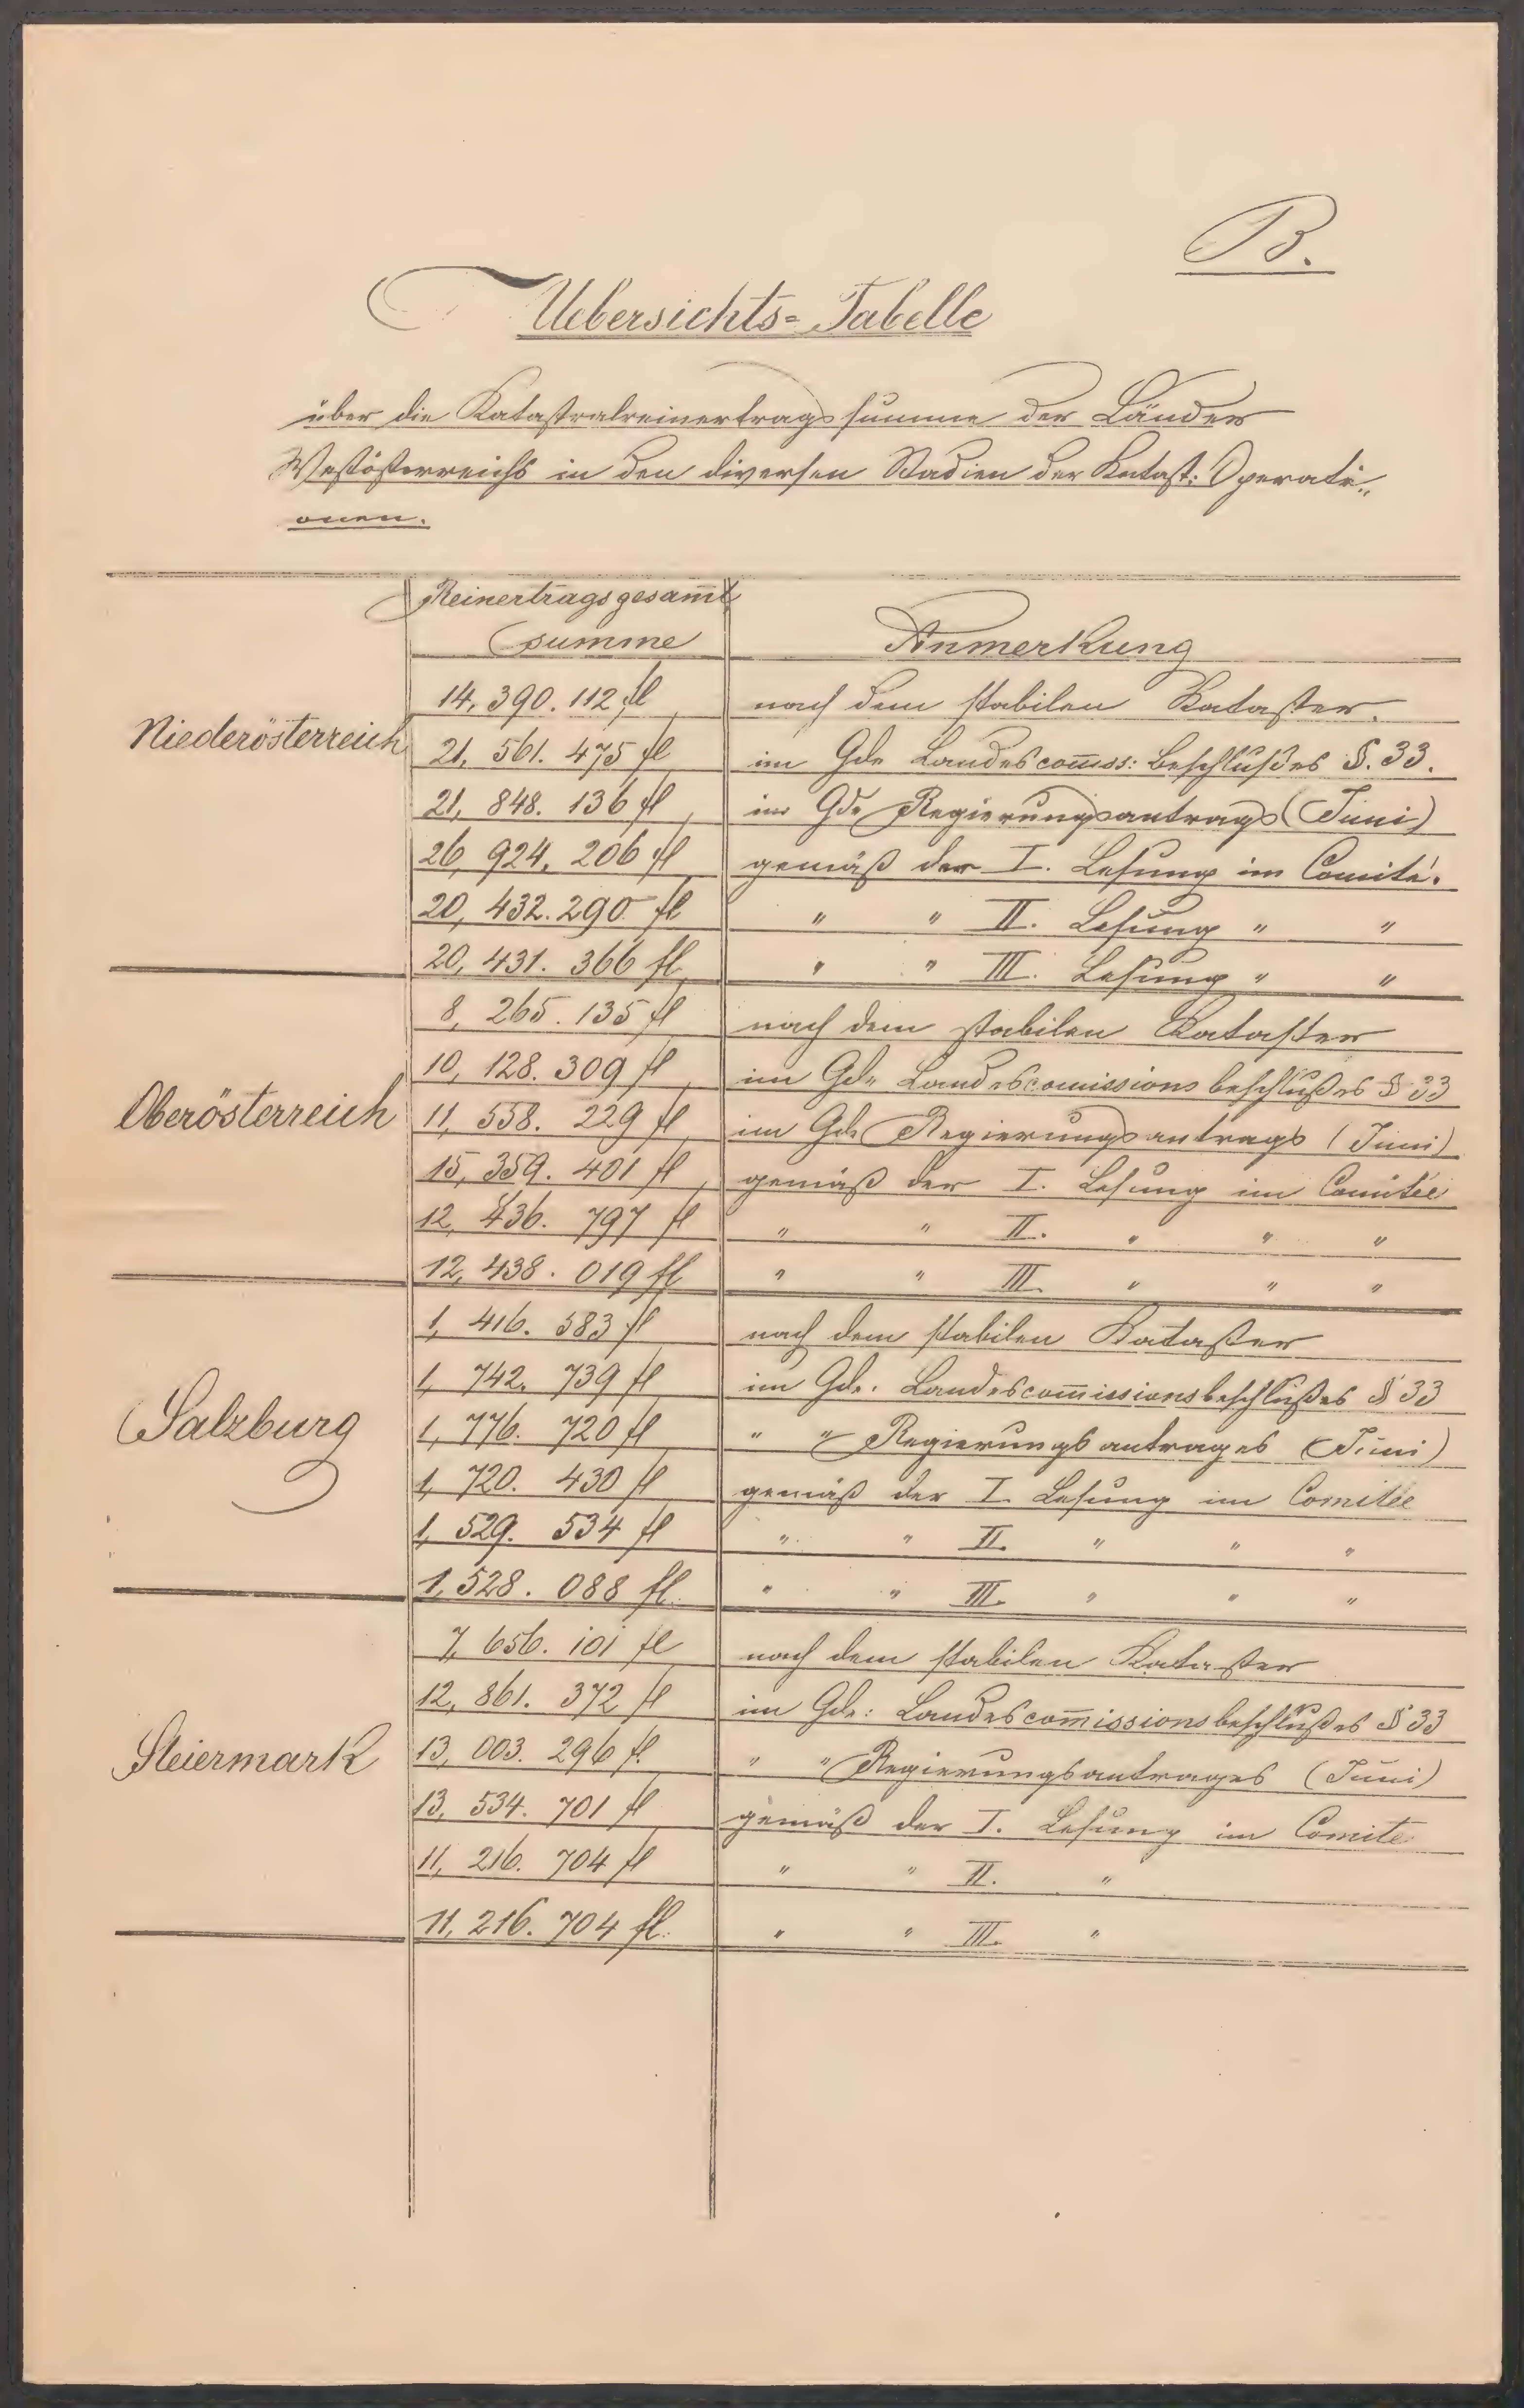 B.
Uebersichts-Tabelle
über die Katastralreinertragssumme der Länder
Westösterreichs in den diversen Stadien der Katast: Operati„
onen.
Reinertragsgesam̄t
summe
Anmerkung
Niederösterreich
14,390.112 fl nach dem stabilen Kataster.
21,561.475 fl im Gde Landescom̄iss: Beschlußes §.33.
21,848.136 fl im Gde Regierungsantrags (Juni)
26,924,206 fl gemäß der I. Lesung im Comité.
20,432.290 fl " " II. Lesung " "
20,431.366 fl " " III. Lesung " "
Oberösterreich
8,265.135 fl nach dem stabilen Kataster
10,128.309 fl im Gde Landescom̄issionsbeschlußes § 33
11,558.229 fl im Gde Regierungsantrags (Juni)
15,359.401 fl gemäß der I. Lesung im Comitée
12,436.797 fl " " II. " " "
12,438.019 fl " " III. " " "
Salzburg
1,416.583 fl nach dem stabilen Kataster
1,742.739 fl im Gde. Landescom̄issionsbeschlußes § 33
1,776.720 fl " " Regierungsantrages (Juni)
1,720.430 fl gemäß der I. Lesung im Comitée
1,529.534 fl " " II. " " "
1,528.088 fl. " " III. " " "
Steiermark
7,656.101 fl nach dem stabilen Kataster
12,861.372 fl im Gde: Landescom̄issionsbeschlußes § 33
13,003.296 fl. " " Regierungsantrages (Juni)
13,534.701 fl gemäß der I. Lesung im Comite
11,216.704 fl " " II. "
11,216.704 fl. " " III. "